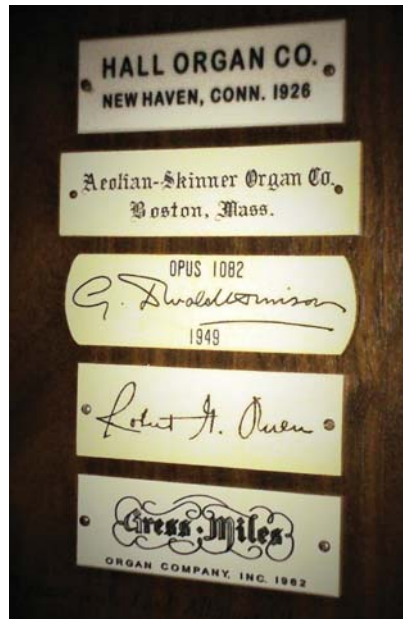 HALL ORGAN CO.
NEW HAVEN, CONN. 1926
Aeolian-Skinner Organ Co.
Boston, Mass.
OPUS 1082
G. Donald Harrison
1949
Robert G. Owen
Gress-Miles
ORGAN COMPANY, INC. 1962